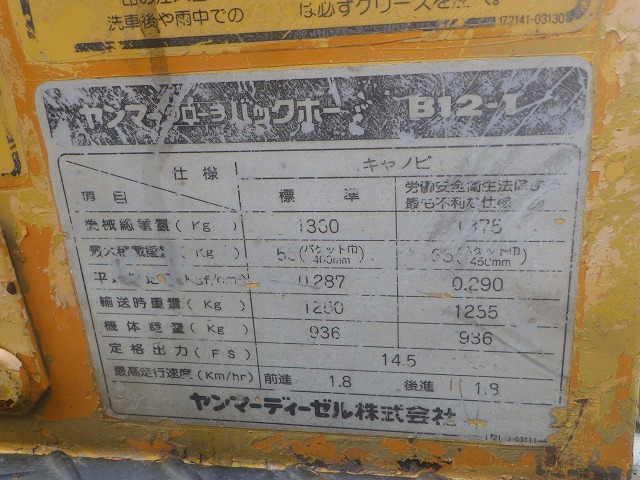 洗車後や雨中での
は必ずグリースを注入。
172141-03130
ヤンマークローラバックホー B12-1
仕様 キャノピ
項目 標準 労働安全衛生法による最も不利な仕様
機械総質量(Kg) 1330 1375
最大積載量(Kg) 55(バケット巾400mm) 65(バケット巾450mm)
0.287 0.290
輸送時重量(Kg) 1255
機体重量(Kg) 936 936
定格出力(PS) 14.5
最高走行速度(Km/hr) 前進 1.8 後進 1.8
ヤンマーディーゼル株式会社